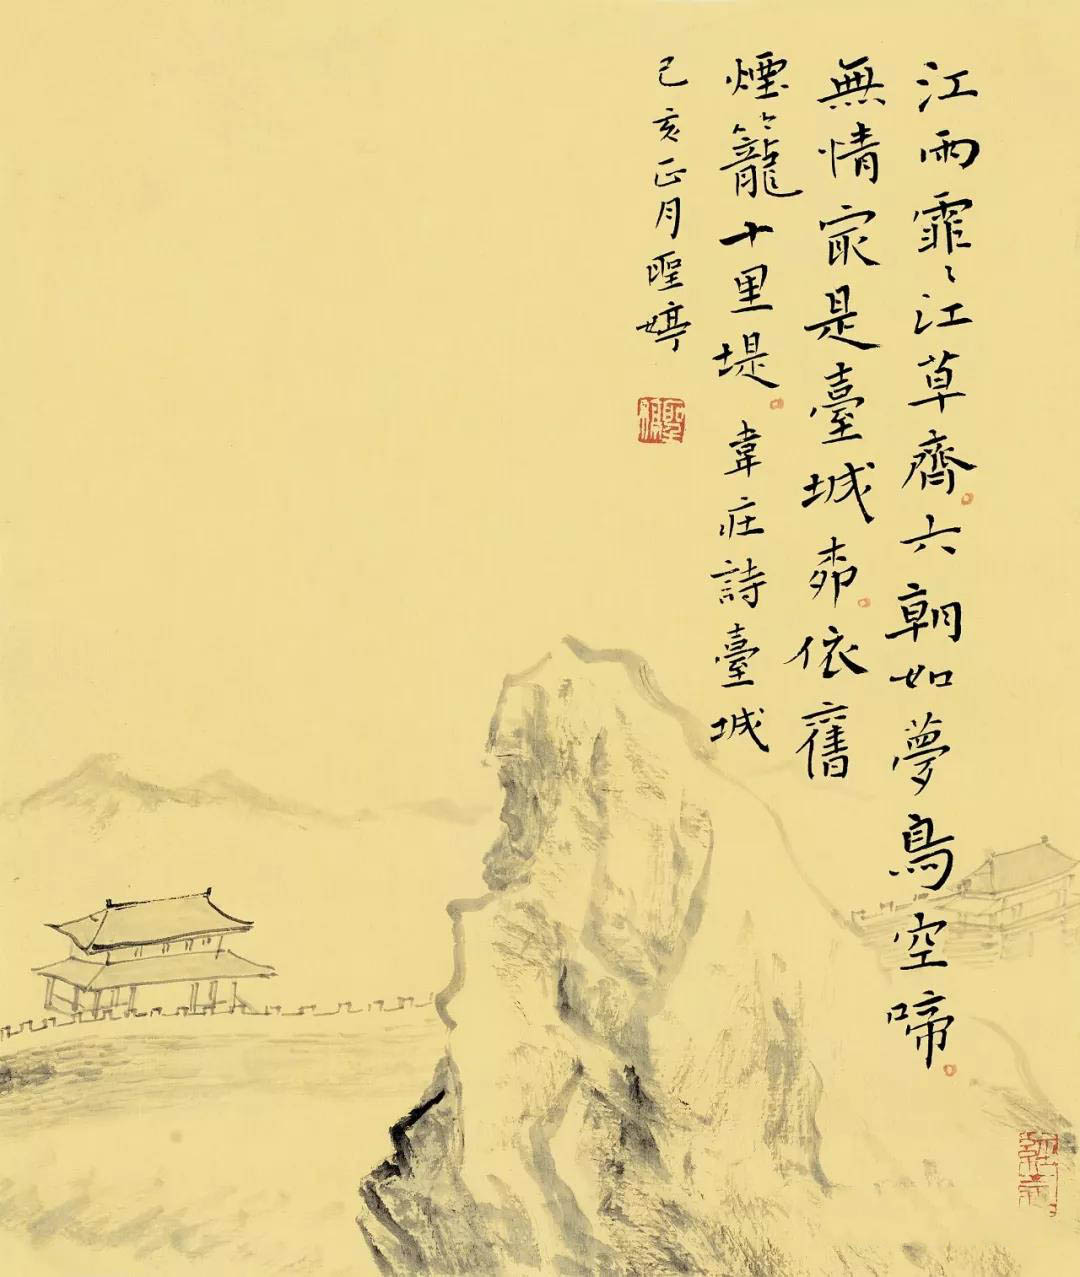 江雨霏〻江草齊。六朝如夢鳥空啼。
無情冣是臺城桺。依舊
煙籠十里堤。韋莊詩臺城
己亥正月聖婷